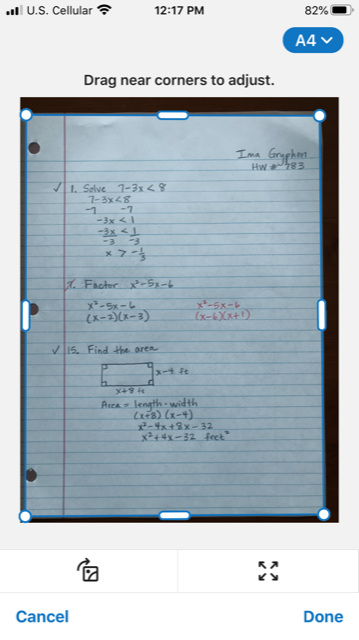 U.S. Cellular 12:17 PM 82%
A4
Drag near corners to adjust.
Ima Gryphon
HW # 783
✓ 1. Solve 7-3x < 8
7-3x<8
-7 -7
-3x < 1
-3x < 1
-3 -3
x > -1/3
7. Factor x²-5x-6
x²-5x-6 x²-5x-6
(x-2)(x-3) (x-6)(x+1)
✓ 15. Find the area
x-4 ft
x+8 ft
Area = length·width
(x+8)(x-4)
x²-4x+8x-32
x²+4x-32 feet²
Cancel Done